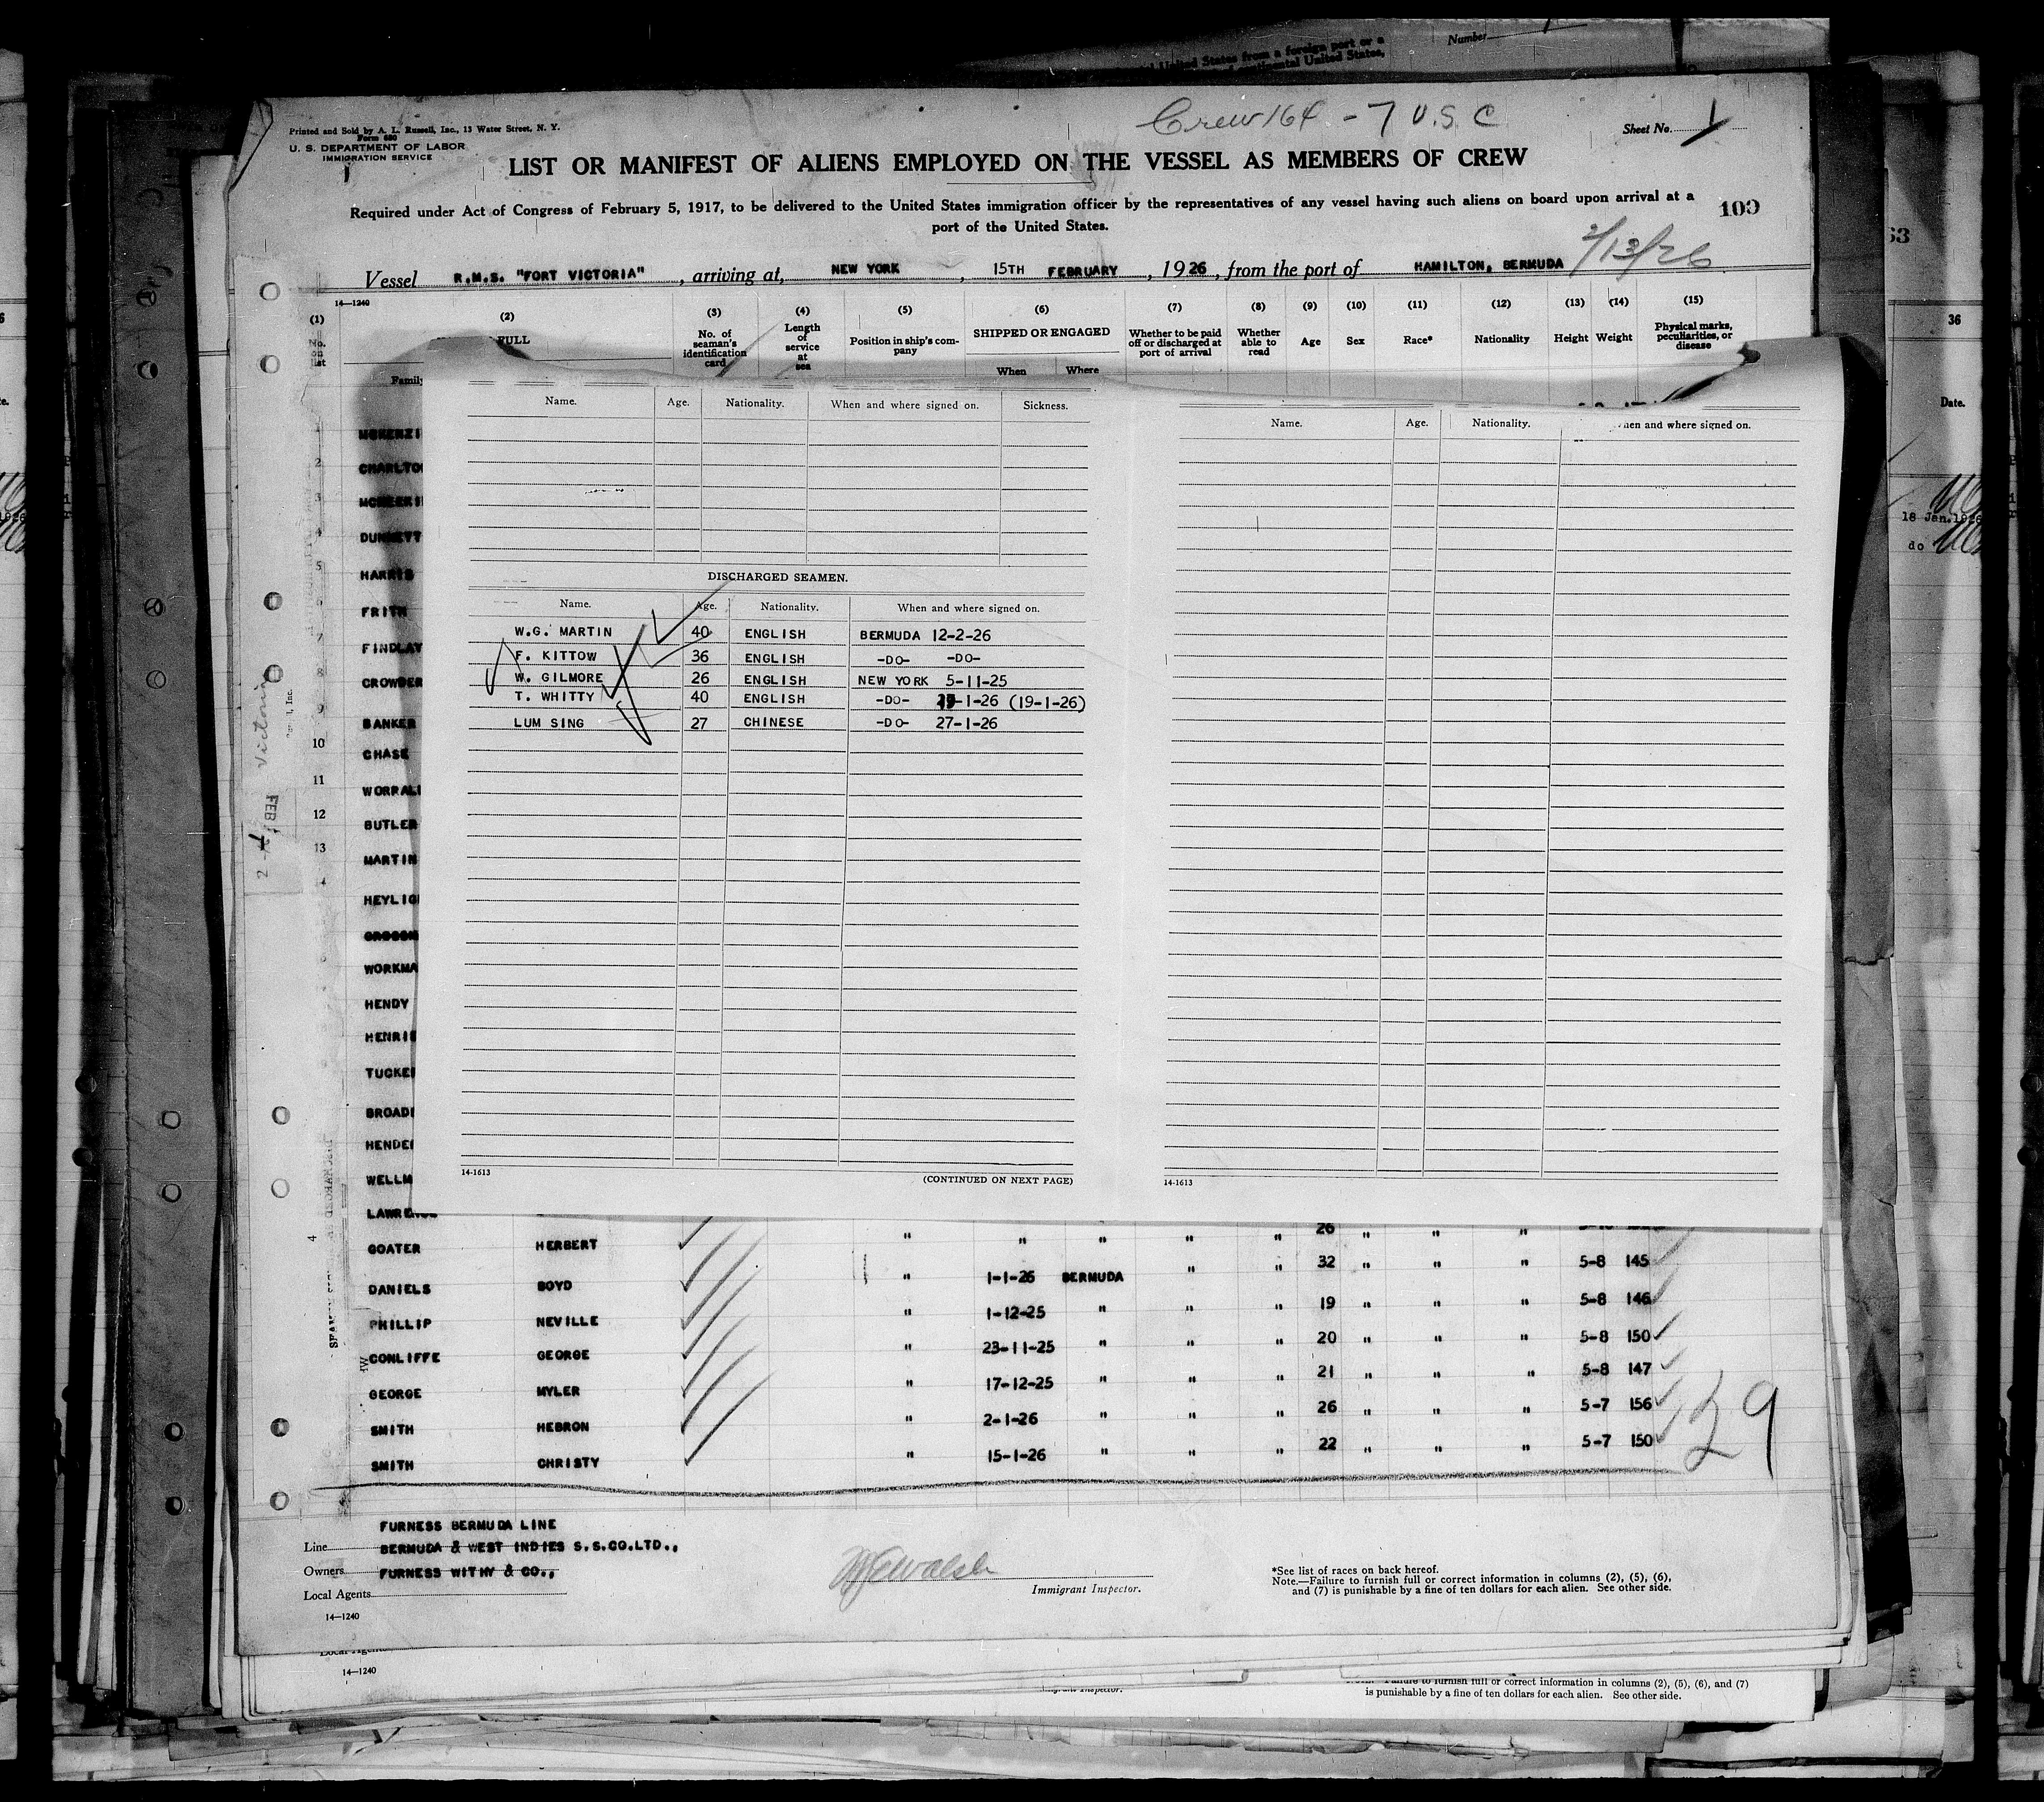 Number
United States from a foreign port or a
continental United States,
Crew 164 - 7 U.S.C
Printed and Sold by A. L. Russell, Inc., 13 Water Street, N. Y.
Form 680
U. S. DEPARTMENT OF LABOR
IMMIGRATION SERVICE
Sheet No. 1
LIST OR MANIFEST OF ALIENS EMPLOYED ON THE VESSEL AS MEMBERS OF CREW
Required under Act of Congress of February 5, 1917, to be delivered to the United States immigration officer by the representatives of any vessel having such aliens on board upon arrival at a
port of the United States.
100
2/13/26
Vessel R.M.S. "FORT VICTORIA", arriving at, NEW YORK, 15TH FEBRUARY, 1926, from the port of HAMILTON, BERMUDA
14—1240
(1) (2) (3) (4) (5) (6) (7) (8) (9) (10) (11) (12) (13) (14) (15)
No. on list FULL No. of seaman's identification card Length of service at sea Position in ship's company SHIPPED OR ENGAGED Whether to be paid off or discharged at port of arrival Whether able to read Age Sex Race* Nationality Height Weight Physical marks, peculiarities, or disease
Family When Where
Name. Age. Nationality. When and where signed on. Sickness.
Name. Age. Nationality. When and where signed on.
DISCHARGED SEAMEN.
Name. Age. Nationality. When and where signed on.
W.G. MARTIN 40 ENGLISH BERMUDA 12-2-26
F. KITTOW 36 ENGLISH -DO- -DO-
W. GILMORE 26 ENGLISH NEW YORK 5-11-25
T. WHITTY 40 ENGLISH -DO- 19-1-26 (19-1-26)
LUM SING 27 CHINESE -DO- 27-1-26
14-1613
(CONTINUED ON NEXT PAGE)
14-1613
1 MCKENZI
2 CHARLTO
3
4 DUNNETT
5 HARRIS
6 FRITH
7 FINDLAY
8 CROWDER
9 BANKER
10 CHASE
11 WORRALL
12 BUTLER
13 MARTIN
HEYLIG
WORKMA
HENDY
HENRIE
TUCKE
BROAD
HENDE
WELLM
LAWRENCE
26
GOATER HERBERT " " " " " 32 " " " 5-8 145
DANIELS BOYD " 1-1-26 BERMUDA " " 19 " " " 5-8 146
PHILLIP NEVILLE " 1-12-25 " " " 20 " " " 5-8 150
CONLIFFE GEORGE " 23-11-25 " " " 21 " " " 5-8 147
GEORGE MYLER " 17-12-25 " " " 26 " " " 5-7 156
SMITH HEBRON " 2-1-26 " " " 22 " " " 5-7 150
SMITH CHRISTY " 15-1-26 " " "
29
FURNESS BERMUDA LINE
Line BERMUDA & WEST INDIES S.S.CO.LTD.,
Owners FURNESS WITHY & CO.,
Local Agents
14—1240
Immigrant Inspector.
*See list of races on back hereof.
Note.—Failure to furnish full or correct information in columns (2), (5), (6),
and (7) is punishable by a fine of ten dollars for each alien. See other side.
14—1240
Failure to furnish full or correct information in columns (2), (5), (6), and (7)
is punishable by a fine of ten dollars for each alien. See other side.
Victoria
FEB
63
36
Date.
18 Jan. 1926
do